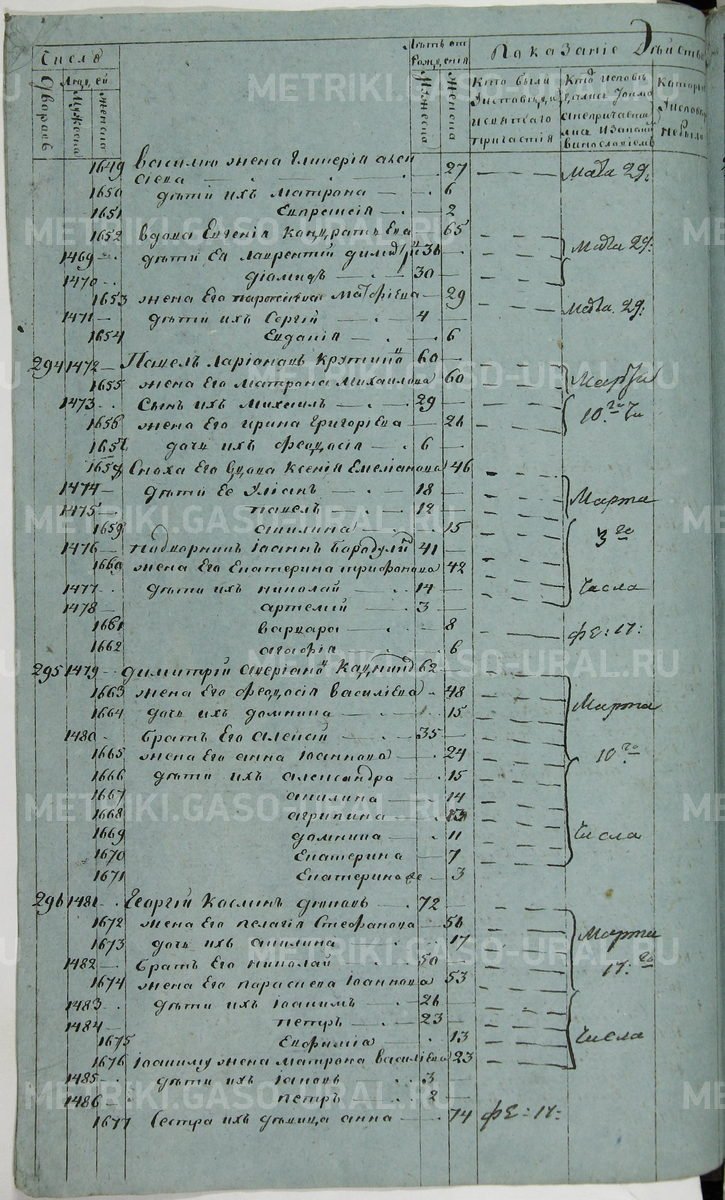 Число
Лѣтъ от
Показаніе Дѣйств
Дворовъ
Люд, ей
Рожд, енія
Мужеска
Женска
Мужеска
Женска
Кто были
Исповѣди и
святаго
причастія
Кто исповѣ
дался токмо
а не причасти
лся
Которые
Исповеди
не были
1649 Василию жена Гликерія 27 — — — Марта 29:
1650 дѣти ихъ Матрона — 6
1651 Евпраксія — 2
1652 вдова Евгенія Кондратьева 65 — — —
1469 дѣти Ея Лаврентій 36 — — — Марта 29:
1470 Діомидъ — 30 — — —
1653 жена Его Матфѣева — 29 — — — Марта 29:
1471 дѣти ихъ Сергій — 4
1654 Евдокія — 6
294 1472 Павелъ Ларіоновъ 60 — — —
1655 жена Его Матрона Михаилова 60 — — — Марта
1473 Сынъ ихъ Михаилъ — 29 — — — 10го Чи
1656 жена Его Ирина Григоріева — 26 — — —
1657 дочь ихъ Феодосія — 6
1658 Сноха Его вдова Ксенія Емеліанова 46 — — —
1474 дѣти Ее Уліанъ — 18 — — — Марта
1475 Павелъ — 12 — — —
1659 Акилина — 15 — — — 3го
1476 Подворникъ Іоаннъ 41 — — —
1660 жена Его Екатерина Трифонова 42 — — —
1477 дѣти ихъ Николай — 14 — — — Числа
1478 Артемій — 3
1661 Варвара — 8 — — фе: 17:
1662 Агафія — 6
295 1479 Димитрій 62 — — —
1663 жена Его Феодосія Василіева 48 — — — Марта
1664 дочь ихъ Домнина — 15 — — —
1480 Братъ Его Алексій — 35 — — —
1665 жена Его Анна Іоаннова — 24 — — — 10го
1666 дѣти ихъ Александра — 15 — — —
1667 Акилина — 14 — — —
1668 Агрипина — 13 — — —
1669 Домнина — 11 — — — Числа
1670 Екатерина — 7 — — —
1671 Екатерина 2е — 3
296 1481 Георгій Косминъ 72 — — —
1672 жена Его Пелагія Стефанова — 56 — — — Марта
1673 дочь ихъ Акилина — 17 — — —
1482 Братъ Его Николай — 50 — — — 17:го
1674 жена Его Параскева Іоаннова 53 — — —
1483 дѣти ихъ Іоакимъ — 26 — — —
1484 Петръ — 23 — — —
1675 Евфимія — 13 — — — Числа
1676 Іоакиму жена Матрона Василіева 23 — — —
1485 дѣти ихъ Іаковъ — 3
1486 Петръ — 2
1677 Сестра ихъ дѣвица Анна — 74 фе: 17:
METRIKI.GASO-URAL.RU